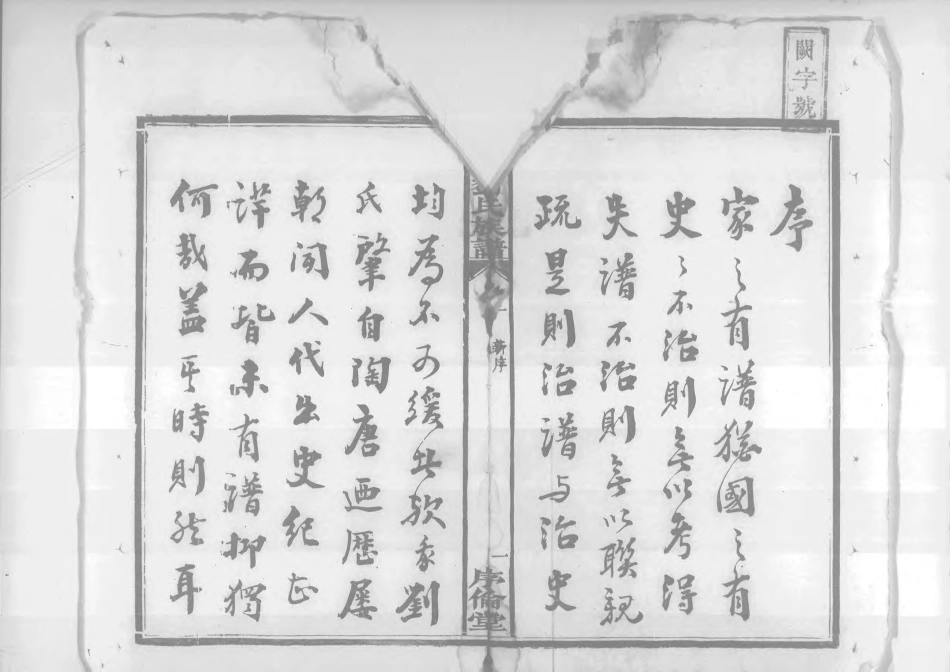 闕字號
序
家之有譜猶國之有
史史不治則無以考得
失譜不治則無以聯親
疏是則治譜与治史
氏族譜
新序
一
序倫堂
均為不可緩者歟我劉
氏肇自陶唐迺歷屢
朝聞人代出史紀
詳而皆未有譜抑獨
何哉蓋其時則然耳